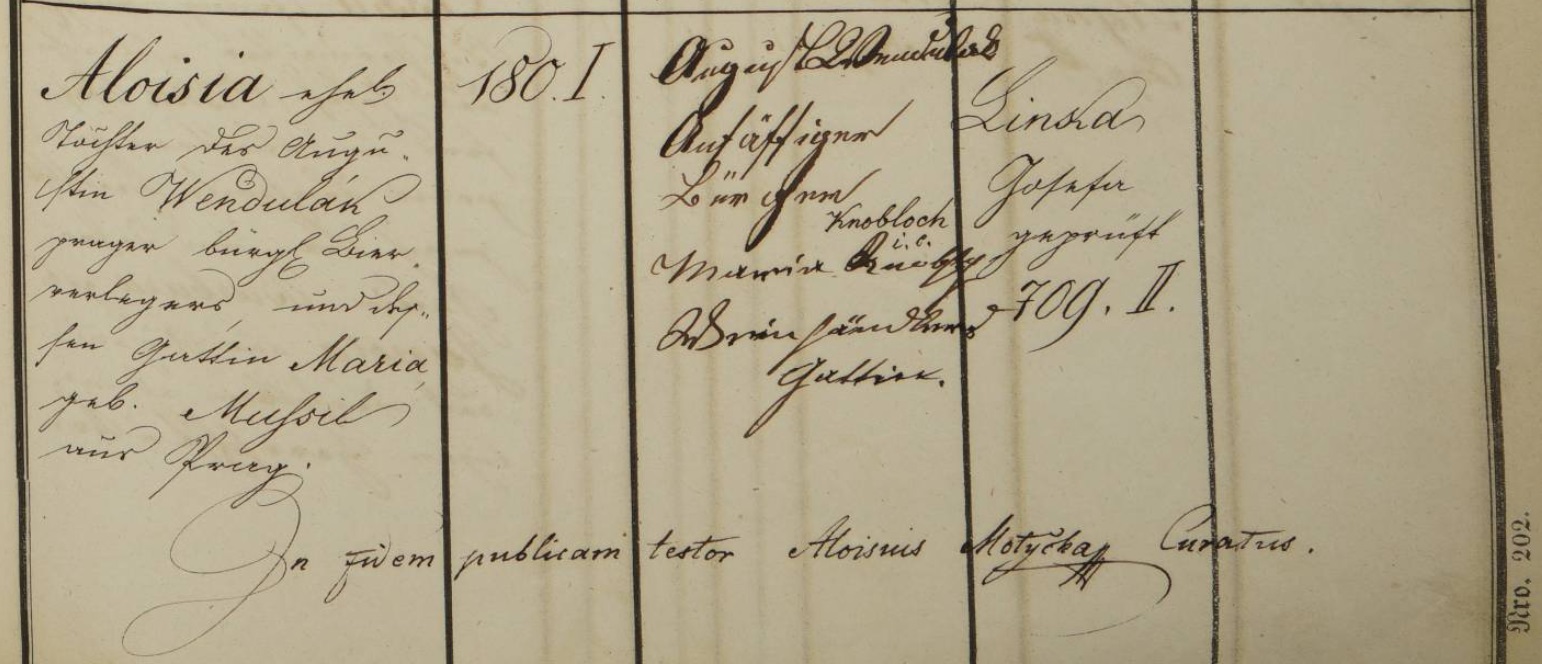 Aloisia ehel.
Tochter des Augu-
stin Wendulák
prager bürgl. Bier-
verlegers, und des-
sen Gattin Maria,
geb. Mussil
aus Prag.
180. I.
August Wendulak
Ansäßiger
Bürger
Knobloch
i. e.
Maria
Weinhändlers
Gattin.
Linska
Josefa
geprüft
709. II.
In fidem publicam testor Aloisius Motyčka Curatus.
Nro. 202.